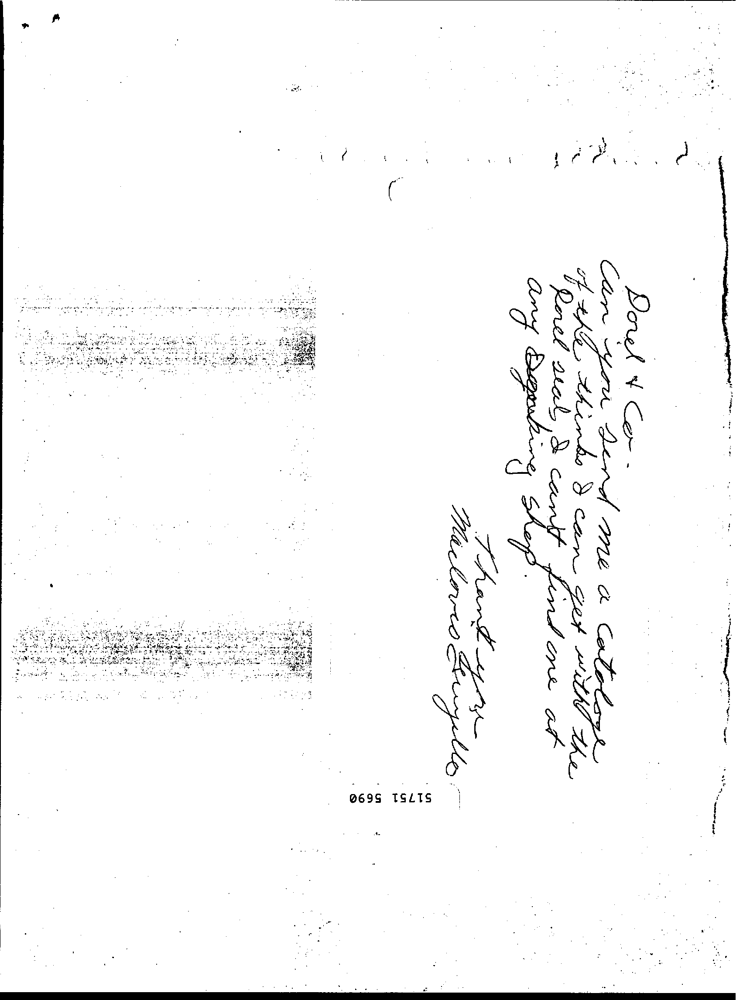 Dorel & Co.
Can you send me a cataloge
of the thinks I can get with the
Dorel seals, I can't find one at
any smoking shop.
Thank you
Maclovio Trujillo
51751 5690